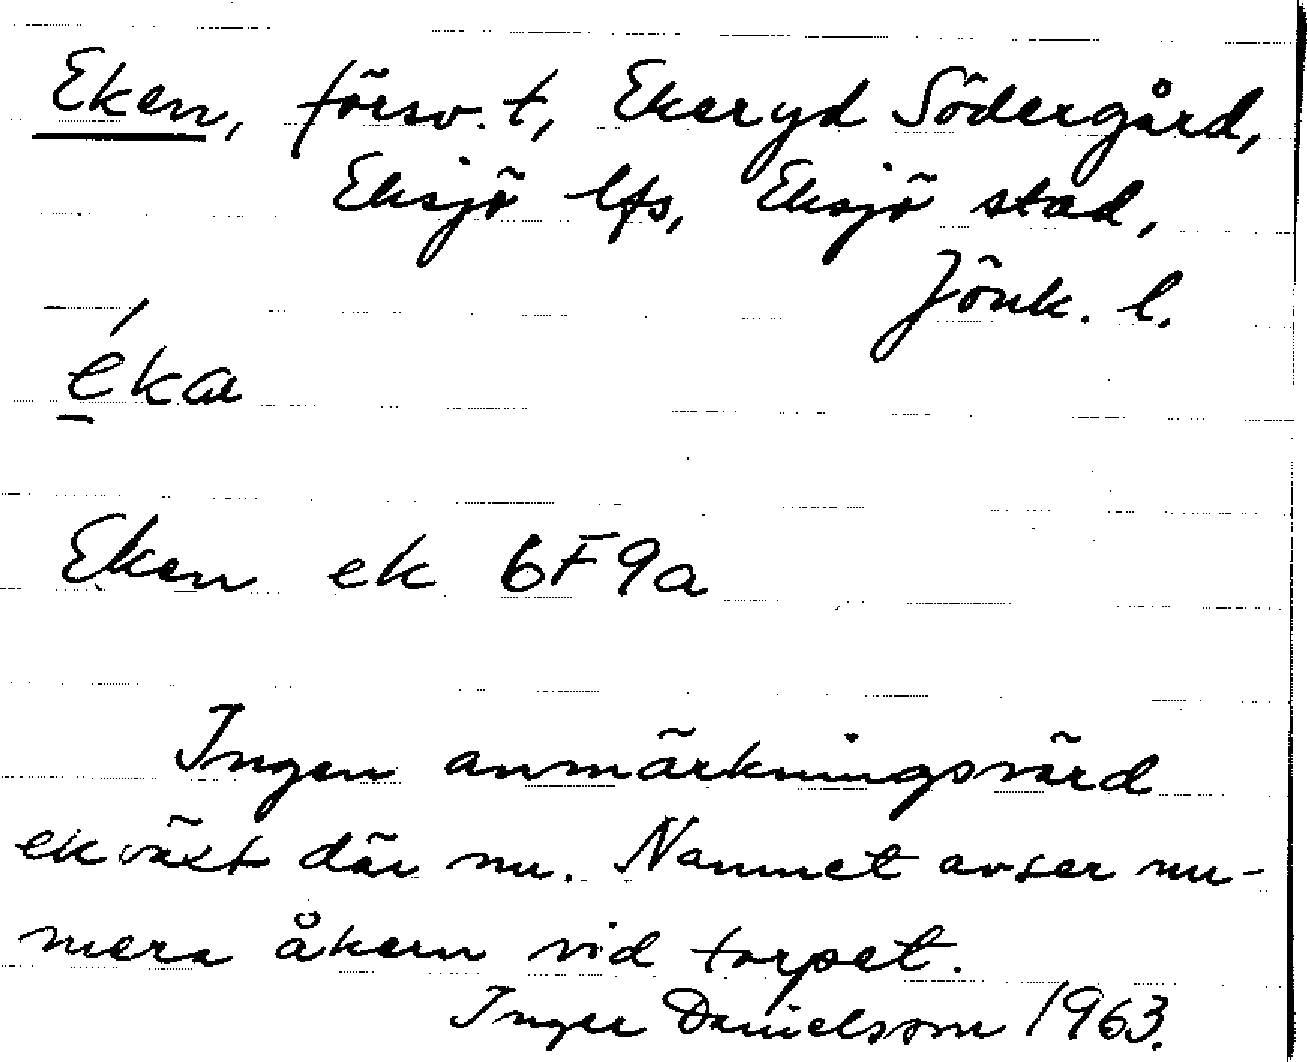 Eken, försv. t, Ekeryd Södergård,
Eksjö lfs, Eksjö stad,
Jönk. l.
éka
Eken ek 6F9a
Ingen anmärkningsvärd
ekväxt där nu. Namnet avser nu-
mera åkern vid torpet.
Inger Danielsson 1963.